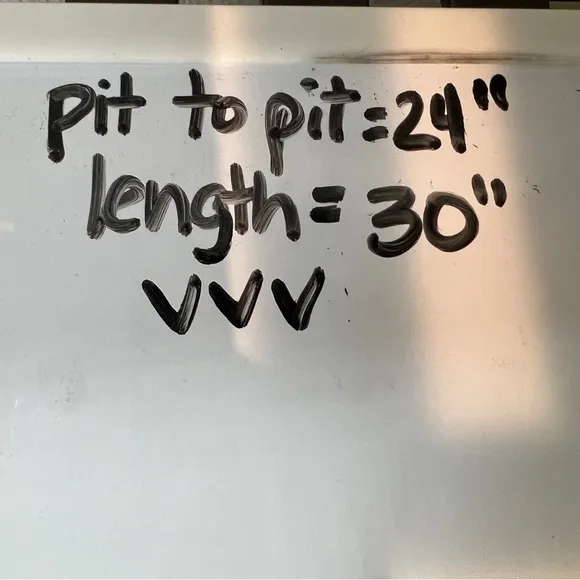 pit to pit = 24"
length = 30"
VVV